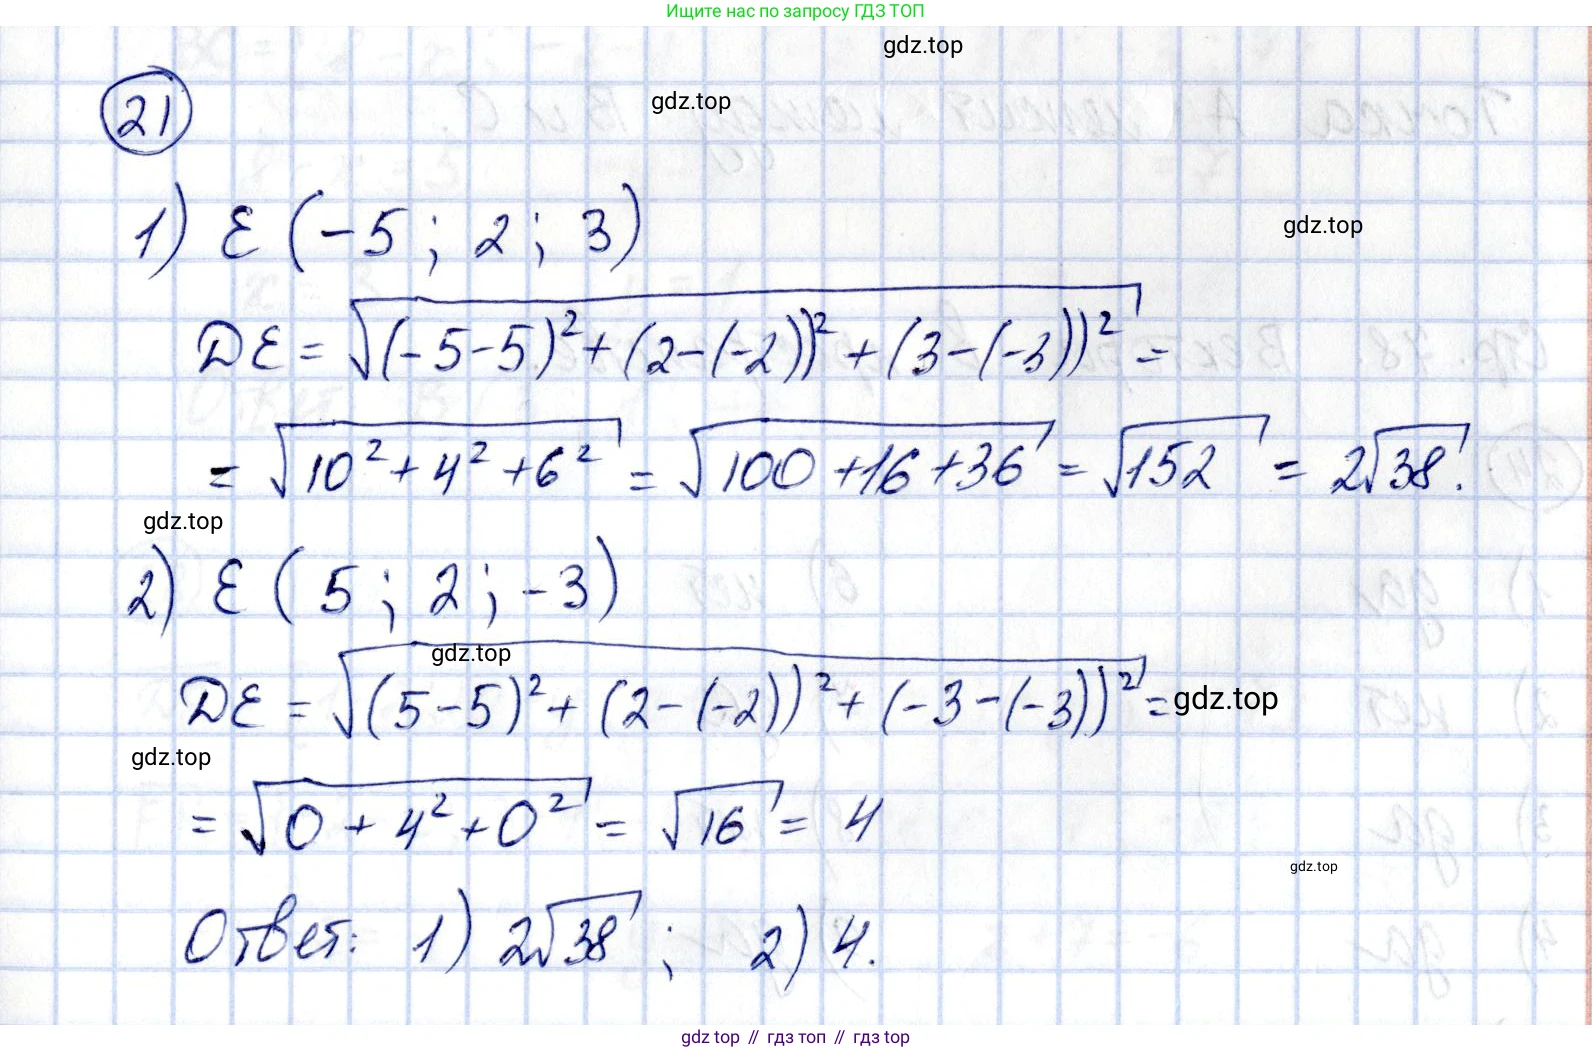 Ищите нас по запросу ГДЗ ТОП
gdz.top
gdz.top
21
gdz.top
1) E (-5 ; 2 ; 3)
DE = √((-5-5)² + (2-(-2))² + (3-(-3))²) =
= √(10² + 4² + 6²) = √(100 + 16 + 36) = √152 = 2√38.
gdz.top
2) E (5 ; 2 ; -3)
gdz.top
DE = √((5-5)² + (2-(-2))² + (-3-(-3))²) =
gdz.top
gdz.top
= √(0 + 4² + 0²) = √16 = 4
gdz.top
Ответ: 1) 2√38 ; 2) 4.
gdz.top // гдз топ // гдз.top